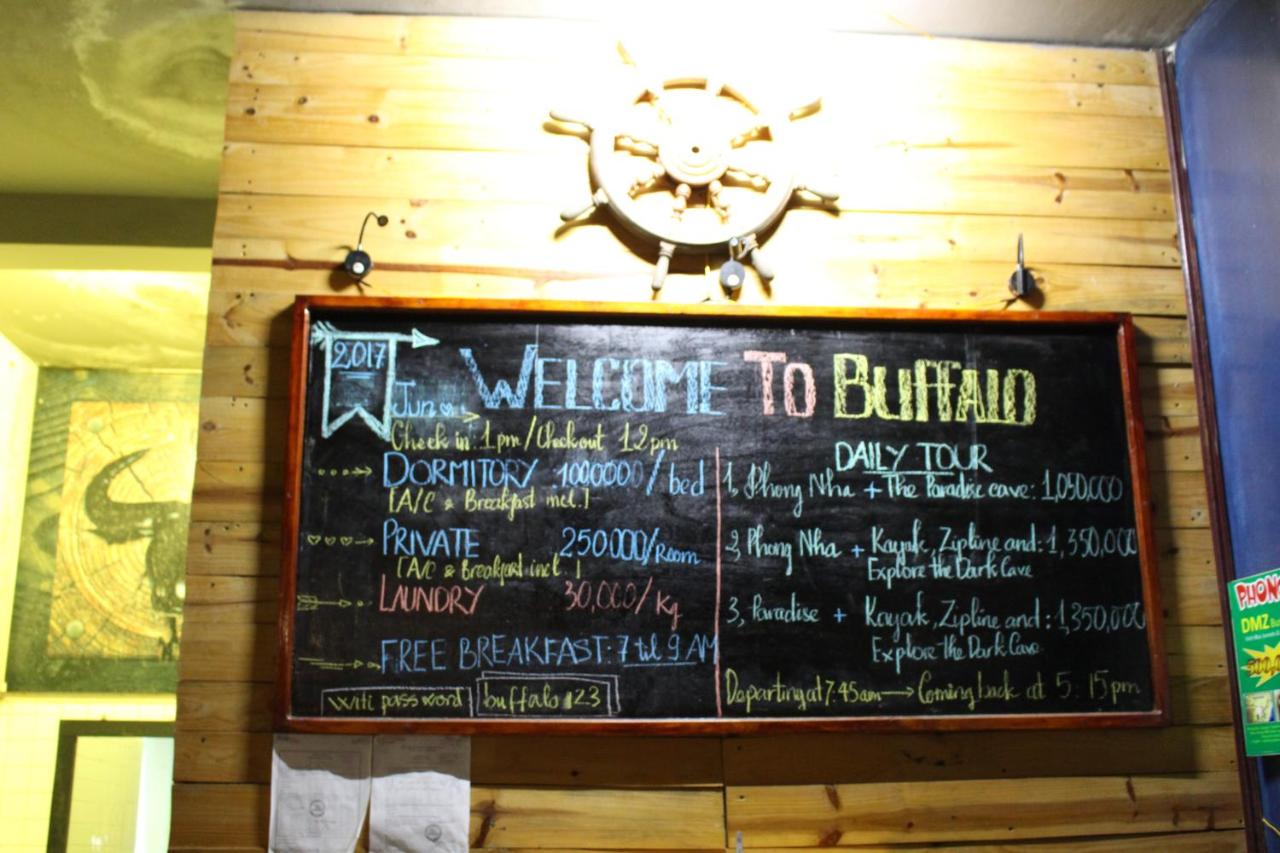 2017
Jun
WELCOME TO BUFFALO
Check in: 1pm/Checkout 12pm
DORMITORY 100.000/bed
[A/C & Breakfast incl.]
PRIVATE 250.000/Room
[A/C & Breakfast incl.]
LAUNDRY 30,000/Kg
FREE BREAKFAST: 7 til 9 AM
Wifi password buffalo123
DAILY TOUR
1, Phong Nha + The Paradise cave: 1,050,000
2, Phong Nha + Kayak, Zipline and: 1,350,000
Explore the Dark Cave
3, Paradise + Kayak, Zipline and: 1,350,000
Explore the Dark Cave.
Departing at 7:45am → Coming back at 5:15pm
PHON
DMZ